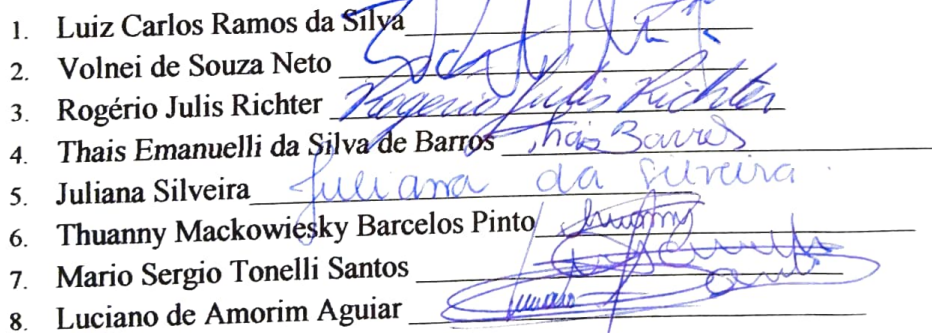 1. Luiz Carlos Ramos da Silva
2. Volnei de Souza Neto
3. Rogério Julis Richter Rogerio Julis Richter
4. Thais Emanuelli da Silva de Barros Thais Barros
5. Juliana Silveira Juliana da Silveira
6. Thuanny Mackowiesky Barcelos Pinto Thuanny
7. Mario Sergio Tonelli Santos
8. Luciano de Amorim Aguiar Luciano